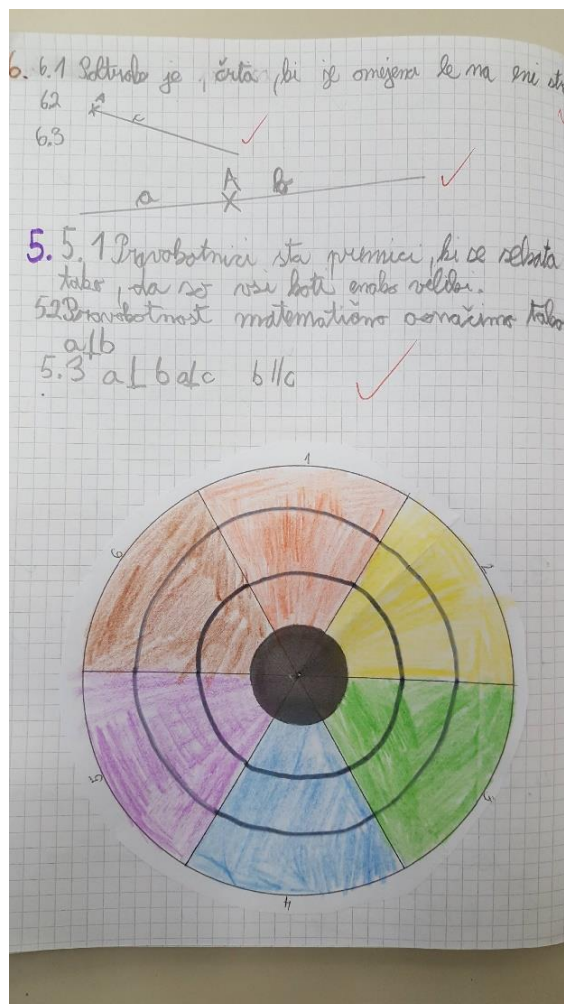 6. 6.1 Poltrak je , črta , ki je omejena le na eni
6.2 A c
6.3
A
a B
5. 5.1 Pravokotnici sta premici , ki se sekata
tako , da so vsi koti enako veliki.
5.2 Pravokotnost matematično označimo tako
a⊥b
5.3 a⊥b a⊥c b||c
1
6 2
5
4